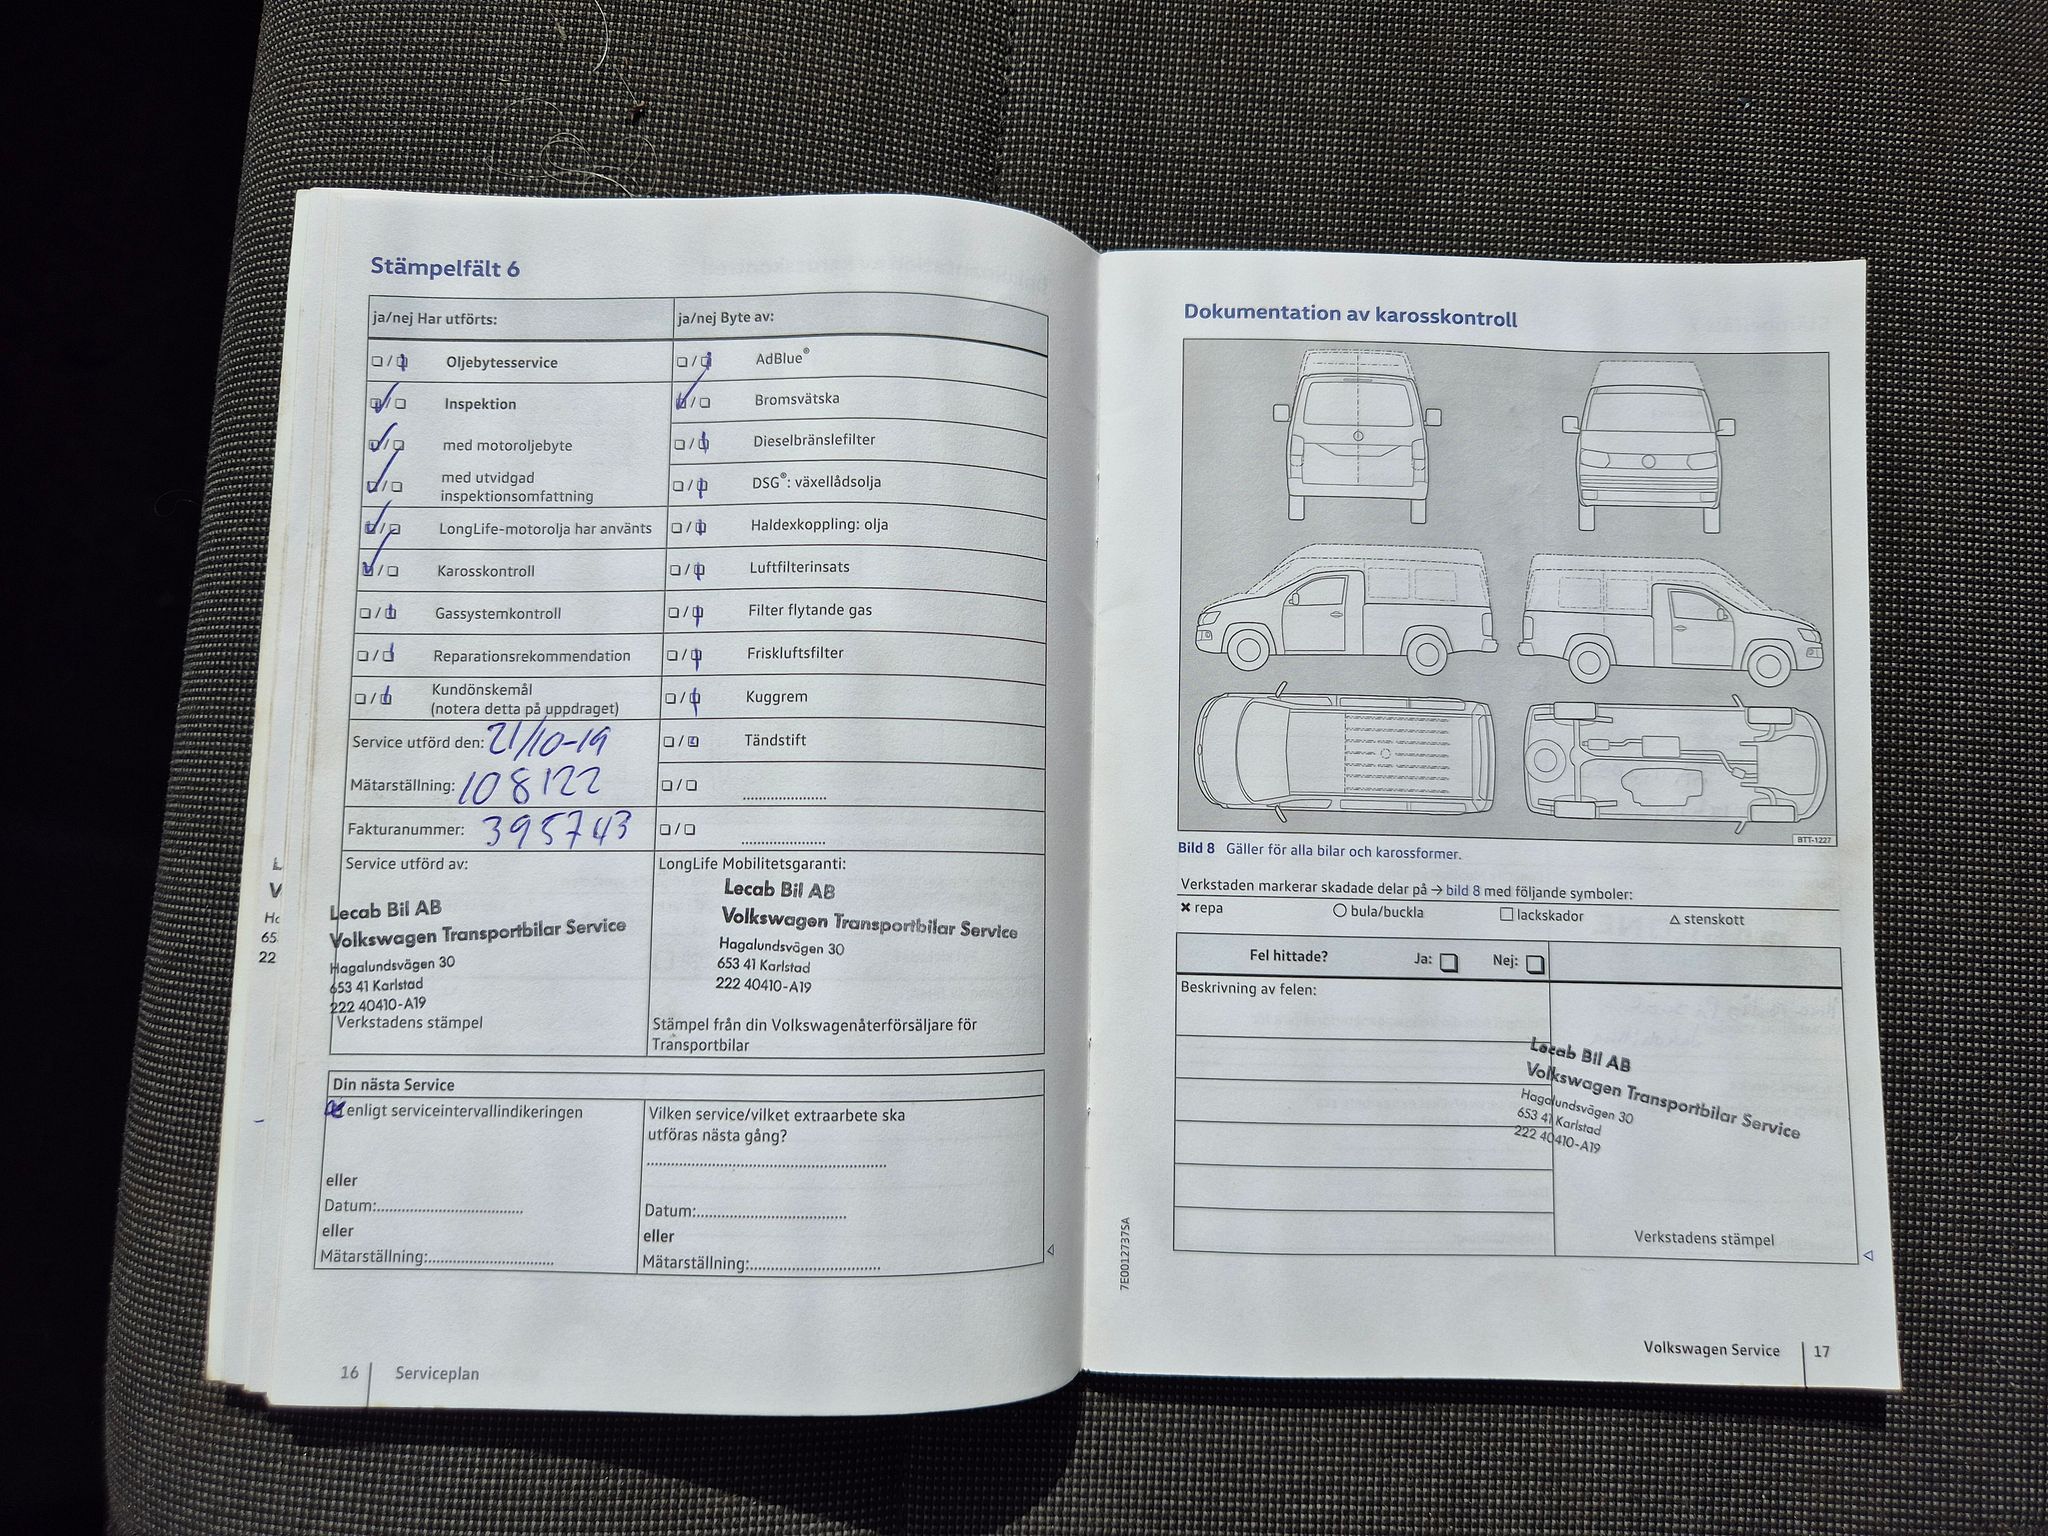 Stämpelfält 6
ja/nej Har utförts:
Oljebytesservice
Inspektion
med motoroljebyte
med utvidgad
inspektionsomfattning
LongLife-motorolja har använts
Karosskontroll
Gassystemkontroll
Reparationsrekommendation
Kundönskemål
(notera detta på uppdraget)
Service utförd den: 21/10-19
Mätarställning: 108122
Fakturanummer: 395743
ja/nej Byte av:
AdBlue®
Bromsvätska
Dieselbränslefilter
DSG®: växellådsolja
Haldexkoppling: olja
Luftfilterinsats
Filter flytande gas
Friskluftsfilter
Kuggrem
Tändstift
Service utförd av:
Lecab Bil AB
Volkswagen Transportbilar Service
Hagalundsvägen 30
653 41 Karlstad
222 40410-A19
Verkstadens stämpel
LongLife Mobilitetsgaranti:
Lecab Bil AB
Volkswagen Transportbilar Service
Hagalundsvägen 30
653 41 Karlstad
222 40410-A19
Stämpel från din Volkswagenåterförsäljare för
Transportbilar
Din nästa Service
enligt serviceintervallindikeringen
eller
Datum:
eller
Mätarställning:
Vilken service/vilket extraarbete ska
utföras nästa gång?
Datum:
eller
Mätarställning:
16 Serviceplan
Dokumentation av karosskontroll
BTT-1227
Bild 8 Gäller för alla bilar och karossformer.
Verkstaden markerar skadade delar på → bild 8 med följande symboler:
repa bula/buckla lackskador stenskott
Fel hittade? Ja: Nej:
Beskrivning av felen:
Lecab Bil AB
Volkswagen Transportbilar Service
Hagalundsvägen 30
653 41 Karlstad
222 40410-A19
Verkstadens stämpel
7E0012737SA
Volkswagen Service 17